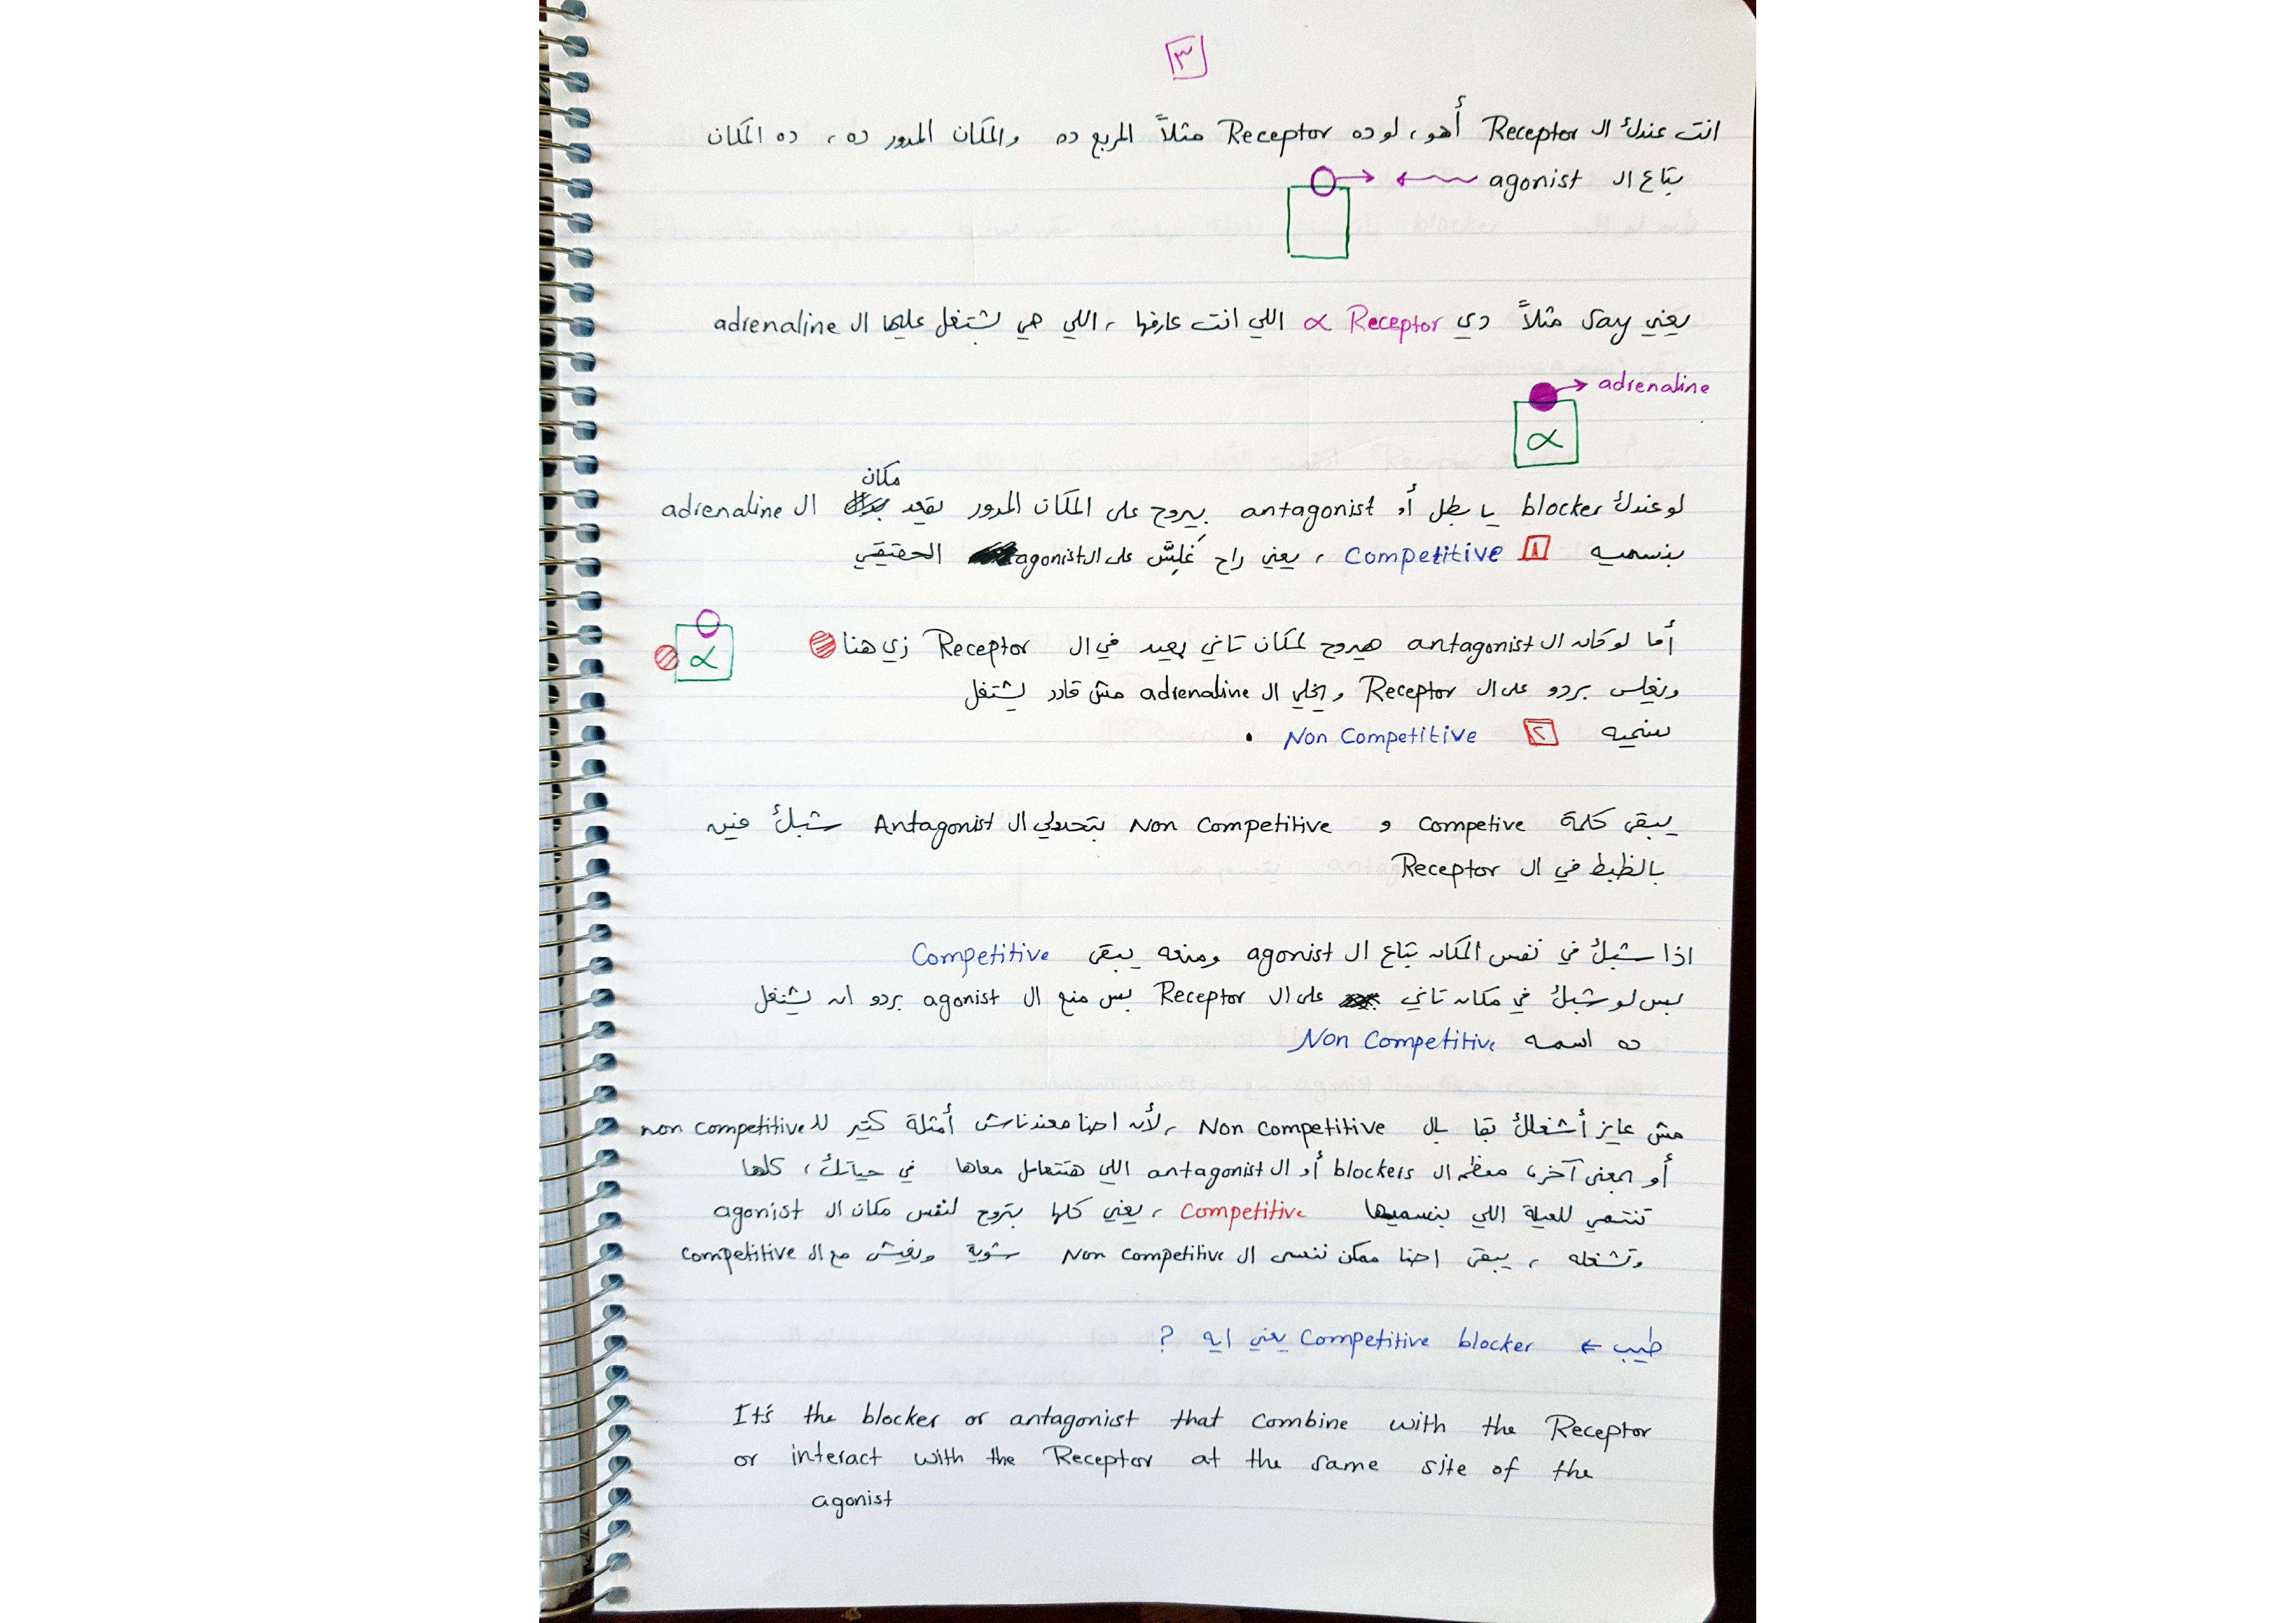 ٣
انت عندك ال Receptor أهو، لو ده Receptor مثلاً المربع ده والمكان المدور ده، ده المكان
بتاع ال agonist
يعني say مثلاً دي α Receptor اللي انت عارفها، اللي هي بشتغل عليها ال adrenaline
adrenaline
α
مكان
لو عندك blocker يا بطل أو antagonist بيروح على المكان المدور يقعد ال adrenaline
بنسميه ١ Competitive، يعني راح غلّس على ال agonist الحقيقي
أما لو كان ال antagonist هيروح لمكان تاني بعيد في ال Receptor زي هنا
α
ويغلس بردو على ال Receptor ويخلي ال adrenaline مش قادر يشتغل
بنسميه ٢ Non Competitive .
يبقى كلمة Competive و Non Competitive بتحددلي ال Antagonist شبك فين
بالظبط في ال Receptor
اذا شبك في نفس المكان بتاع ال agonist ومنعه يبقى Competitive
بس لو شبك في مكان تاني على ال Receptor بس منع ال agonist بردو ان يشتغل
ده اسمه Non Competitive
مش عايز أشغلك بقا بال Non Competitive، لأن احنا معندناش أمثلة كتير لل non competitive
أو بمعنى آخر، معظم ال blockers أو ال antagonist اللي هتتعامل معاها في حياتك، كلها
تنتمي للعيلة اللي بنسميها Competitive، يعني كلها بتروح لنفس مكان ال agonist
وتشغله، يبقى احنا ممكن ننسى ال Non Competitive شوية ونعيش مع ال competitive
طيب ← Competitive blocker يعني ايه ?
It's the blocker or antagonist that combine with the Receptor
or interact with the Receptor at the same site of the
agonist